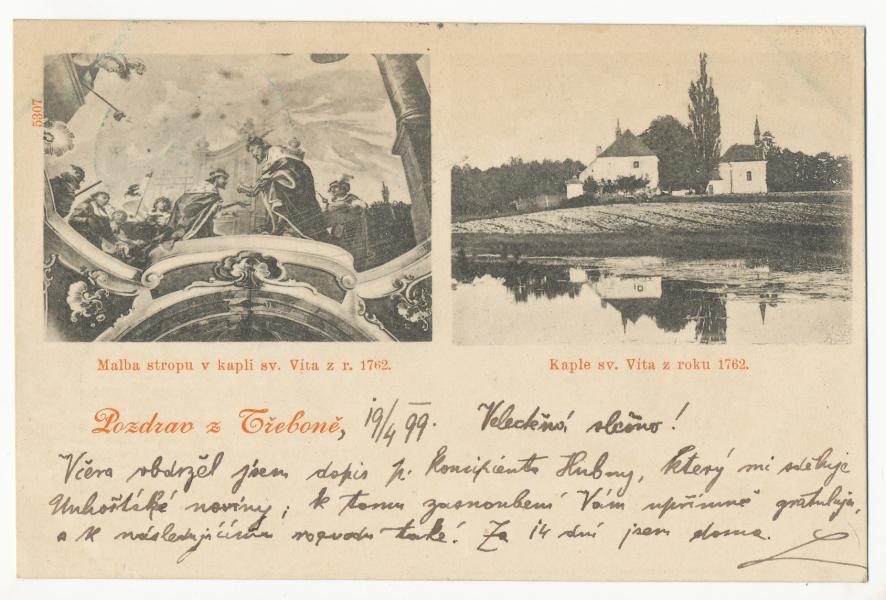 5307
Malba stropu v kapli sv. Víta z r. 1762.
Kaple sv. Víta z roku 1762.
Pozdrav z Třeboně, 19/4 99. Velectěná slečno!
Včera obdržel jsem dopis p. koncipienta Hubny, který mi sděluje
Unhošťské noviny; k tomu zasnoubení Vám upřímně gratuluju,
a k následujícímu rozvodu také! Za 14 dní jsem doma.